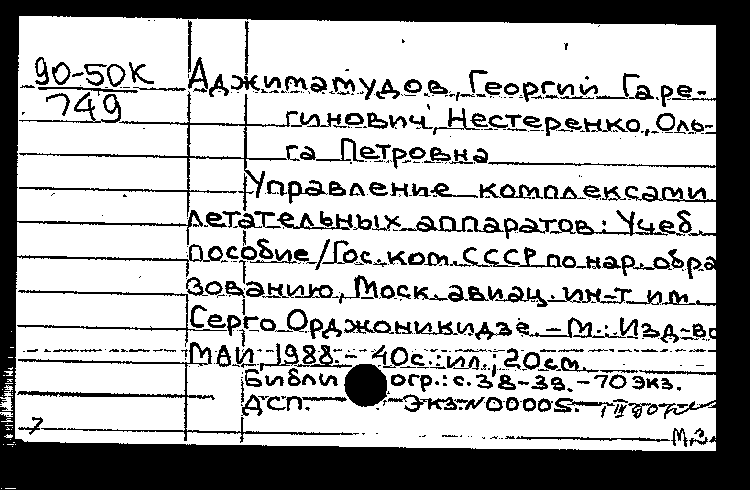 90-50К
749
Аджимамудов, Георгий Гаре-
гинович, Нестеренко, Оль-
га Петровна
Управление комплексами
летательных аппаратов: Учеб.
пособие/Гос. ком. СССР по нар. обра
зованию, Моск. авиац. ин-т им.
Серго Орджоникидзе. - М.: Изд-во
МАИ, 1988. - 40с.: ил.; 20см.
Библи огр.: с.38-39. - 70 экз.
ДСП. Экз.N00005.
7
М.З.